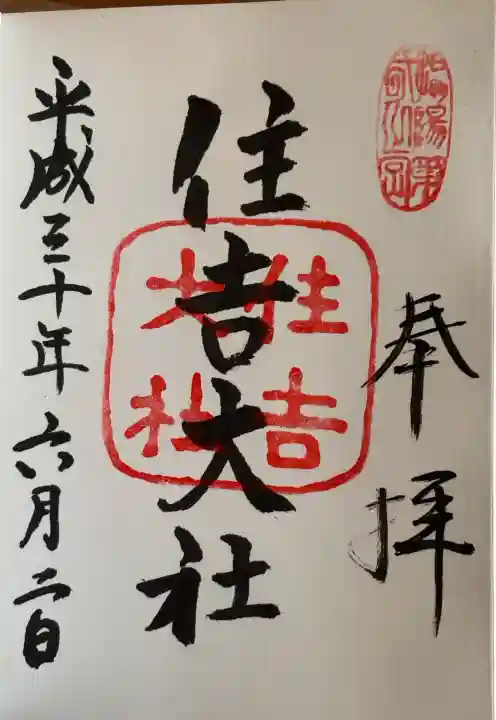 奉拝
住吉大社
住吉大社
平成三十年六月二日